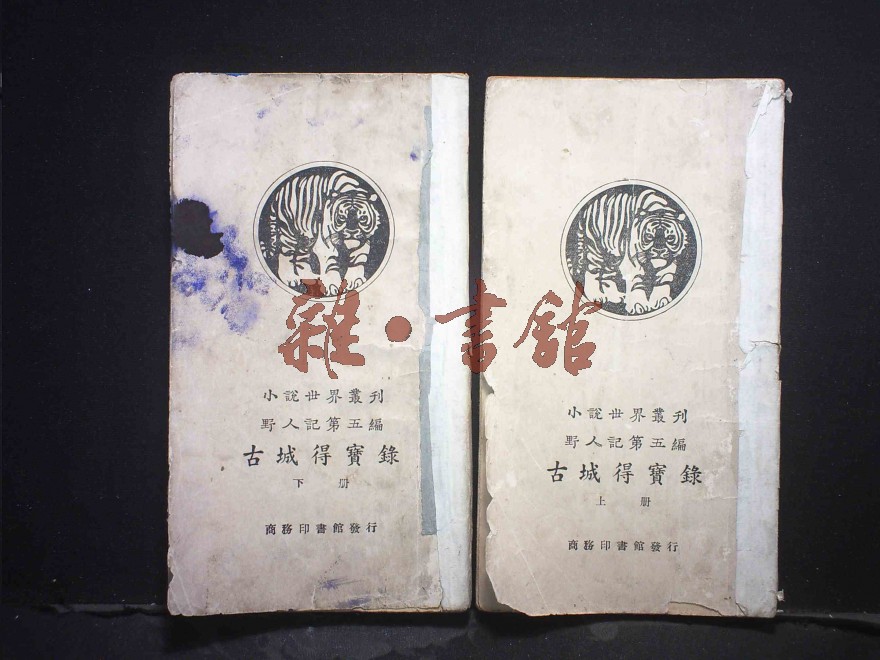 雜·書館
小說世界叢刊
野人記第五編
古城得寶錄
下册
商務印書館發行
小說世界叢刊
野人記第五編
古城得寶錄
上册
商務印書館發行